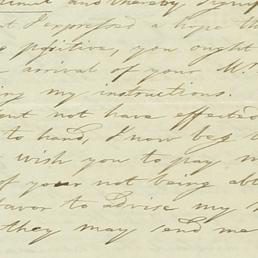 and thereby
t I expressed a hope th
positive, you ought
arrival of your Mr.
ing my instructions.
ont not have effected
to hand, I now beg
wish you to pay m
of your not being abl
eavor to advise my
they may send me